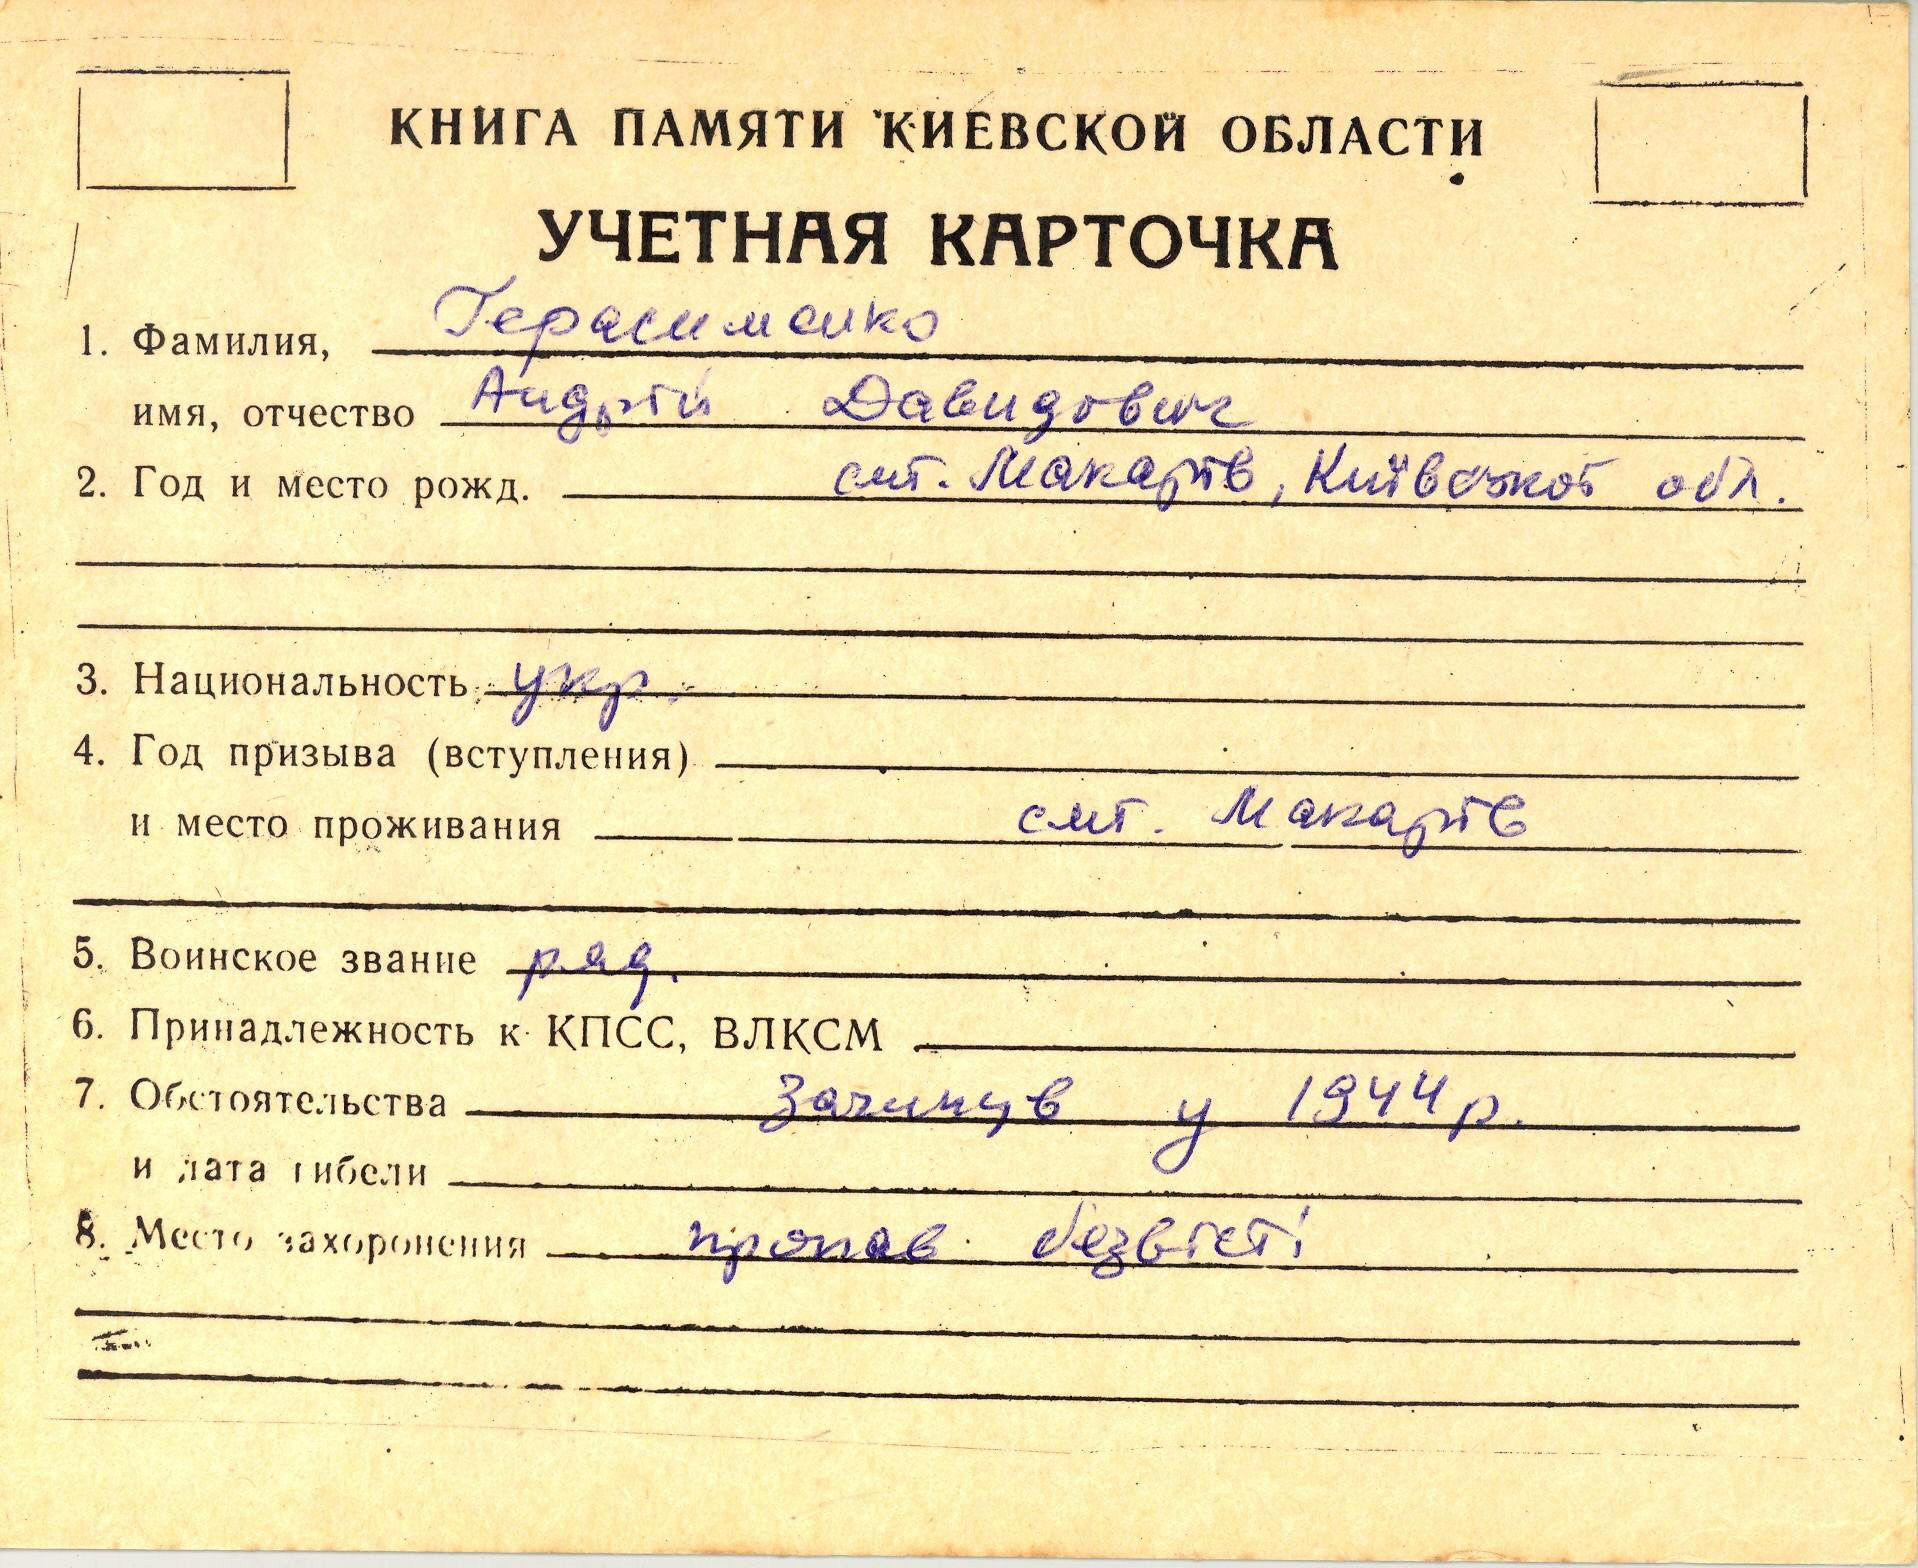 КНИГА ПАМЯТИ КИЕВСКОЙ ОБЛАСТИ
УЧЕТНАЯ КАРТОЧКА
1. Фамилия, Герасименко
имя, отчество Андрій Давидович
2. Год и место рожд. смт. Макарів, Київської обл.
3. Национальность укр.
4. Год призыва (вступления)
и место проживания смт. Макарів
5. Воинское звание ряд.
6. Принадлежность к КПСС, ВЛКСМ
7. Обстоятельства Загинув у 1944 р.
и дата гибели
8. Место захоронения пропав безвісті